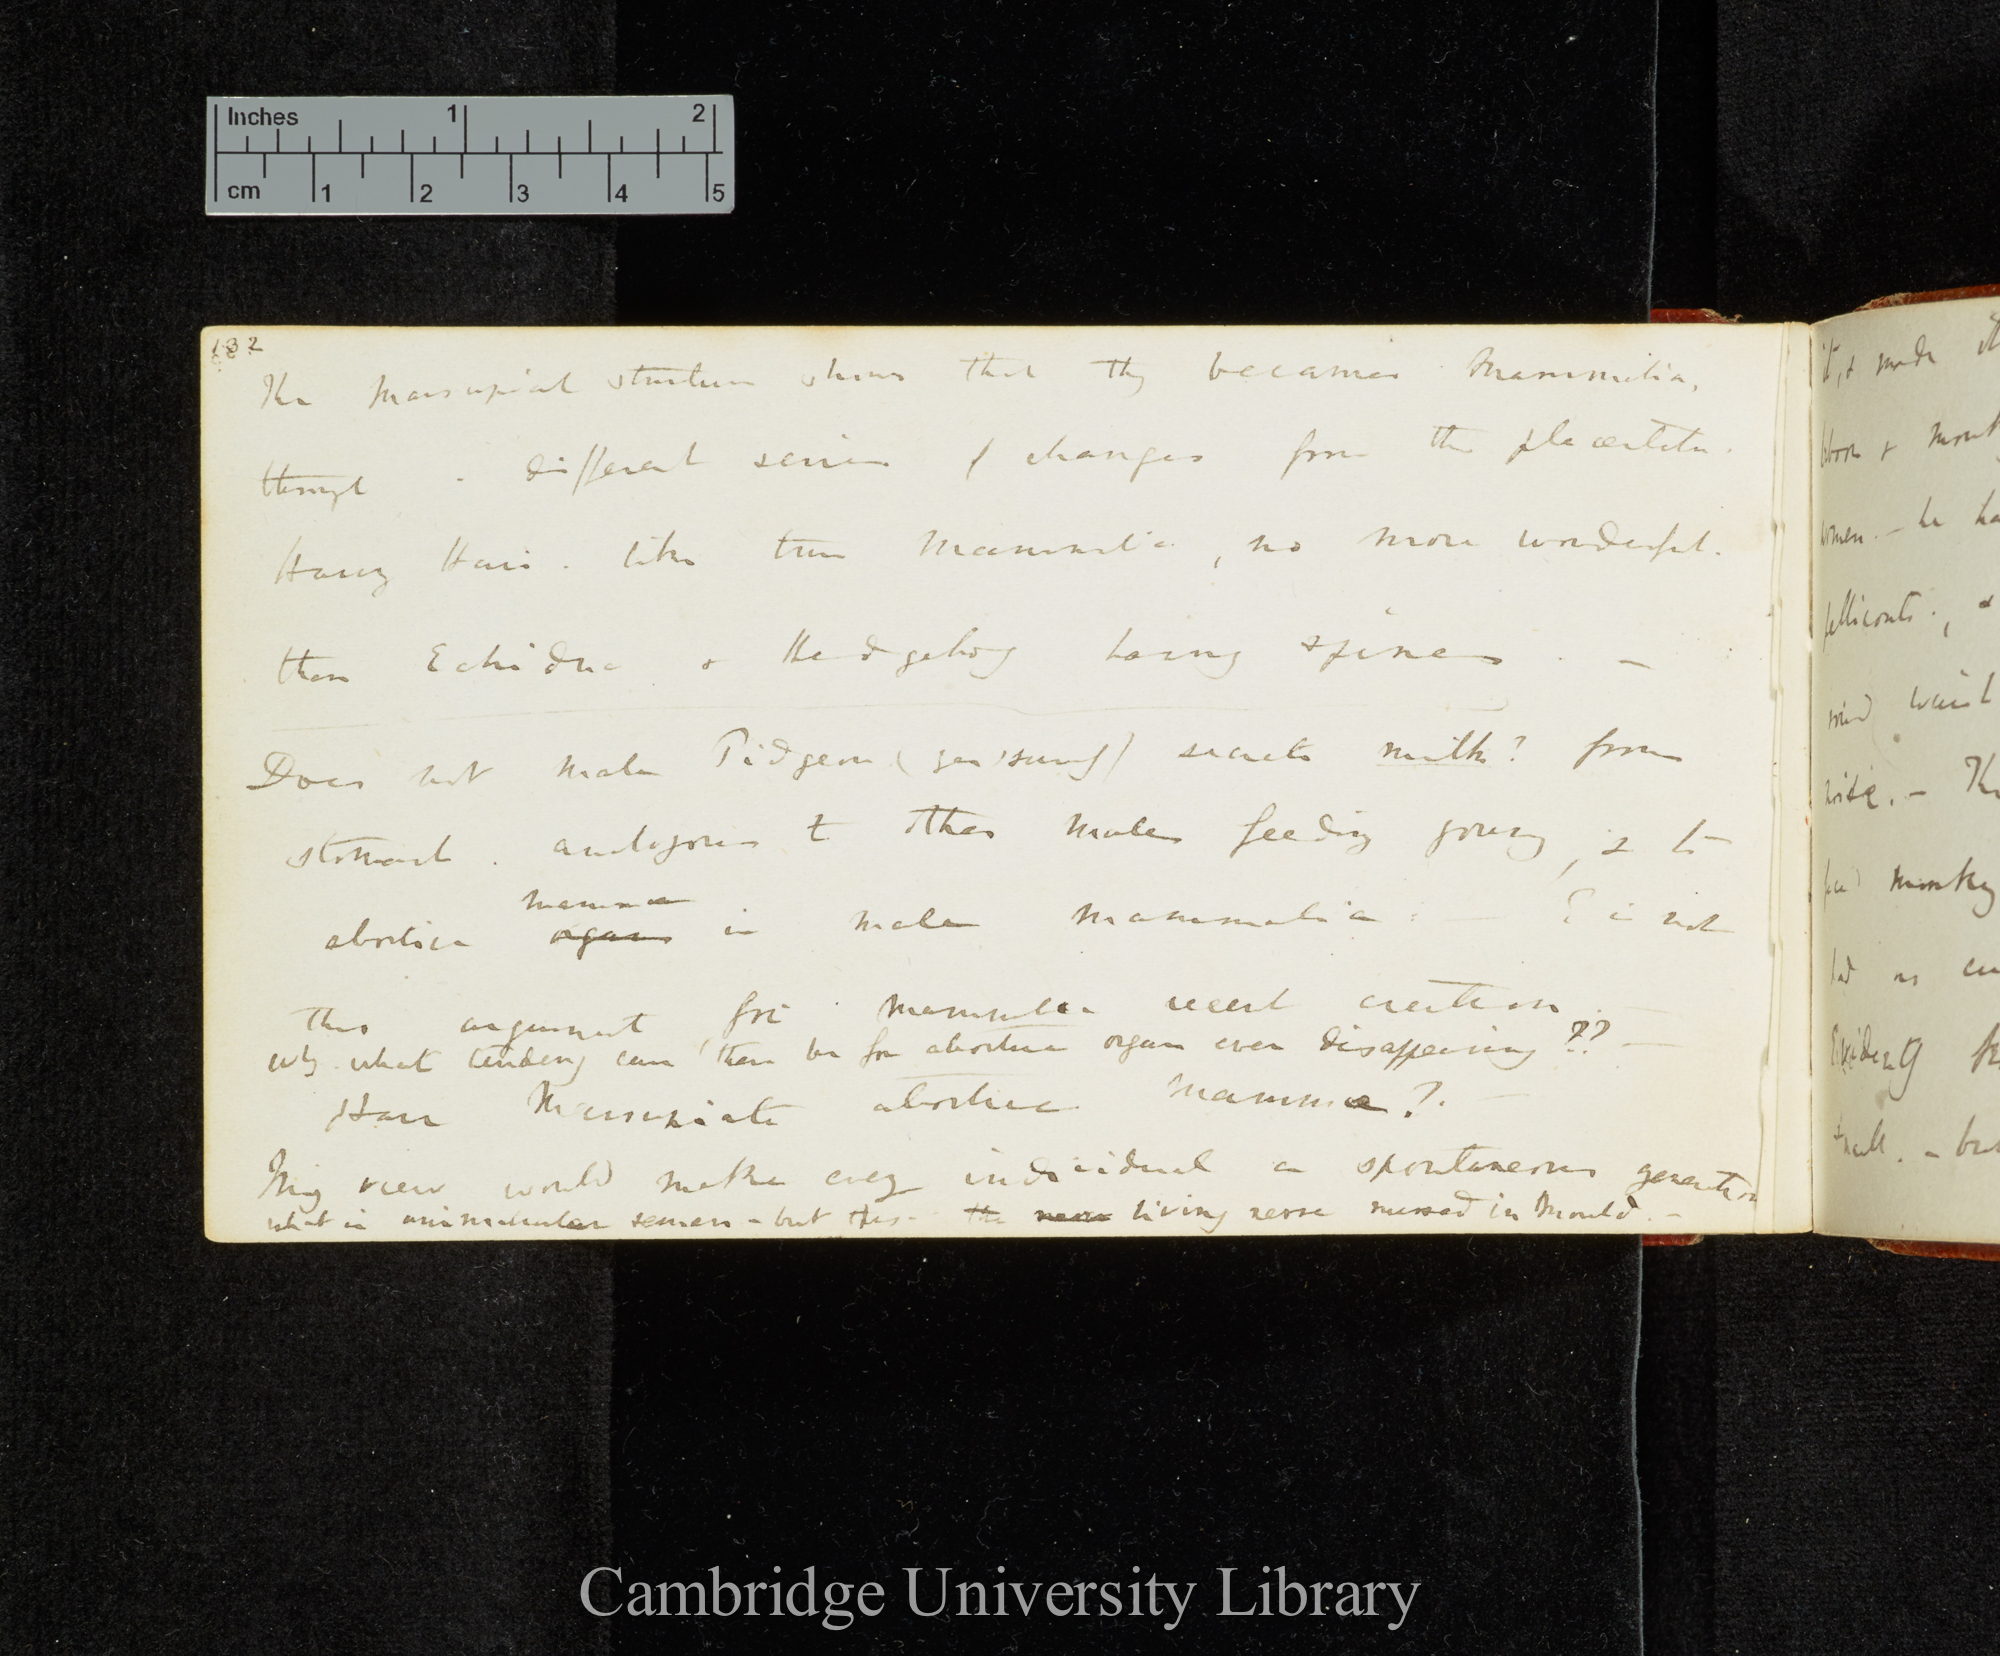 Inches 1 2
cm 1 2 3 4 5
132
The Marsupial structure shows that they became Mammalia,
through different series of changes from the placentata.
Having Hair. like true Mammalia, no more wonderful.
than Echidna & Hedgehog having spines. —
Does not male Pidgeon secrete milk? from
stomach. analogous to other males feeding young, & to
mammæ
abortive organs in male Mammalia: — is not
this argument, for Mammalia recent creation. —
why what tendency can there be for abortive organ ever disappearing?? —
Have Marsupiata abortive Mammæ?. —
My view would make every individual a spontaneous generation
what is animalcular semen – but this. the nerve living nerve nursed in Mould. –
it, & made
women. – he
noise. – The
monkey
had no
Evidently
small. – but
Cambridge University Library